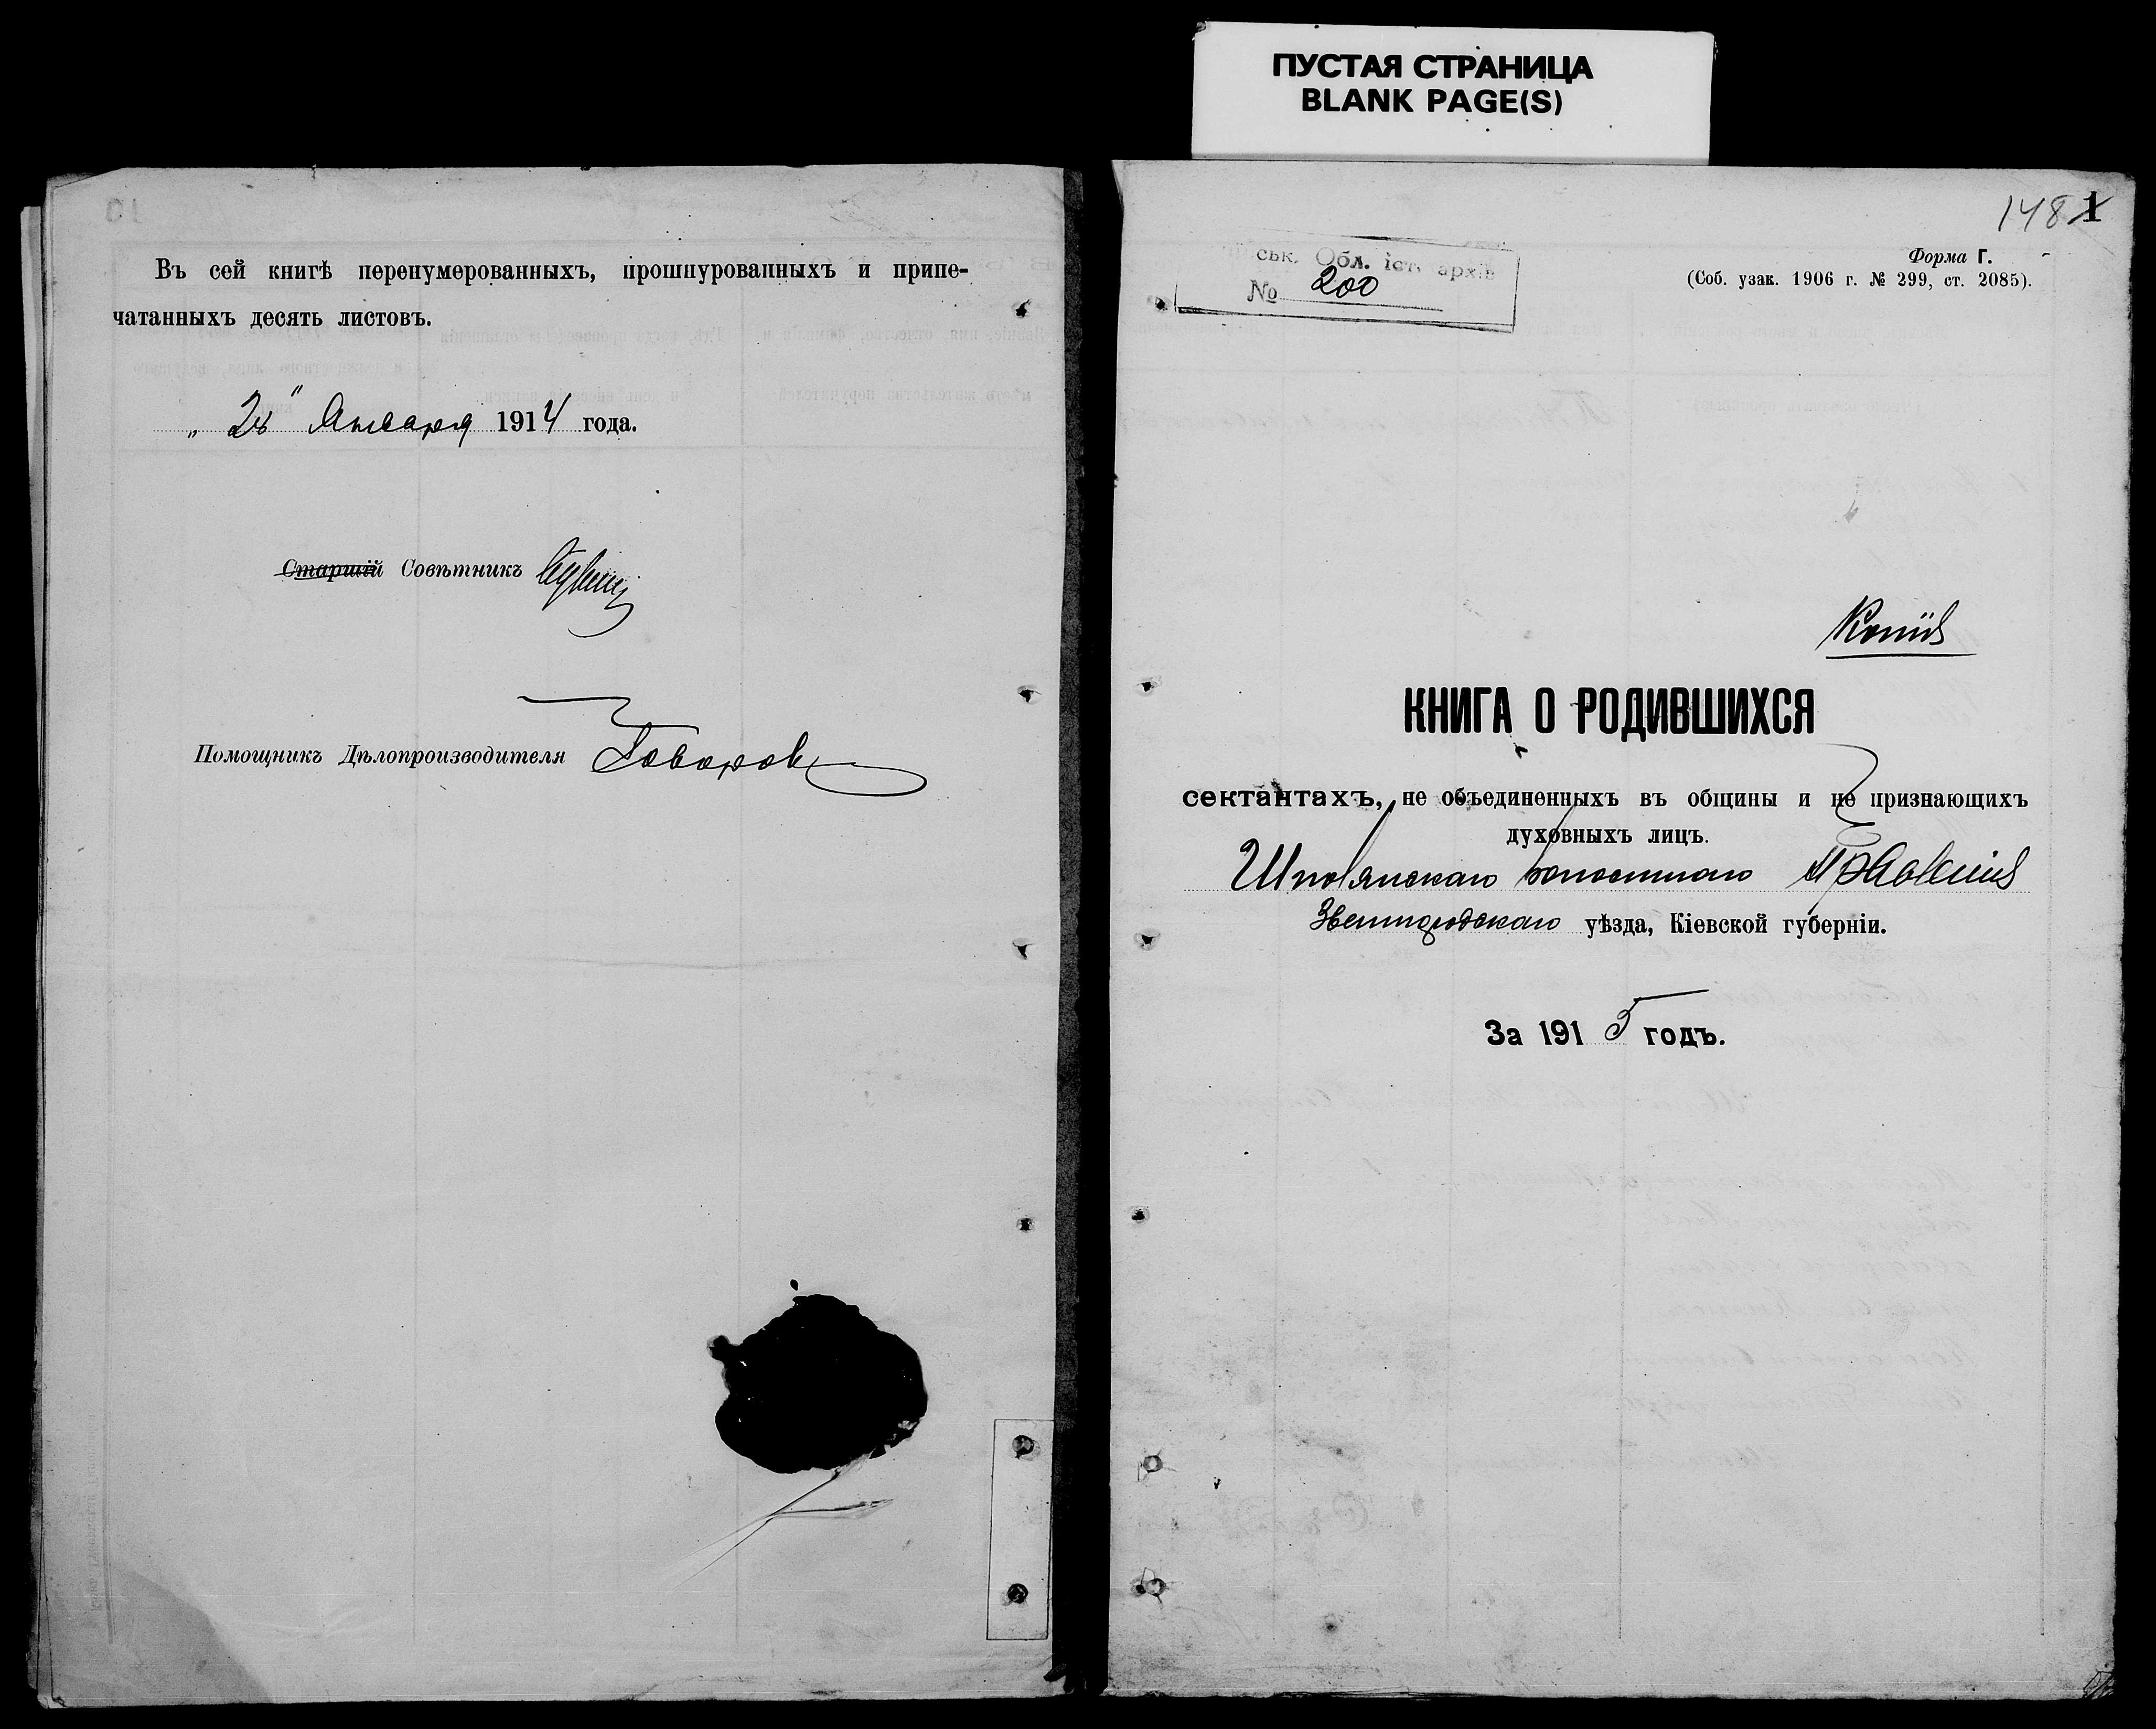 ПУСТАЯ СТРАНИЦА
BLANK PAGE(S)
Въ сей книгѣ перенумерованныхъ, прошнурованныхъ и припе-
чатанныхъ десять листовъ.
Января 1914 года.
Старшій Совѣтникъ
Помощникъ Дѣлопроизводителя Говоров
148 1
Форма Г.
(Соб. узак. 1906 г. № 299, ст. 2085).
ськ. Обл. іст. архів
№ 200
Копія
КНИГА О РОДИВШИХСЯ
сектантахъ, не объединенныхъ въ общины и не признающихъ
духовныхъ лицъ.
Шполянскаго Волостнаго Правленія
Звенигородскаго уѣзда, Кіевской губерніи.
За 1915 годъ.